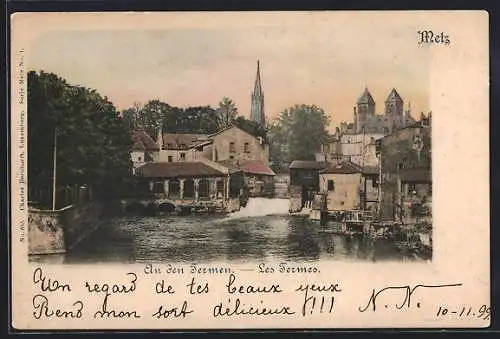 Metz
No. 855 Charles Bernhoeft, Luxemburg. Serie Metz No. 1.
An den Termen. — Les Termes.
Un regard de tes beaux yeux
Rend mon sort délicieux !!!
N. N.
10-11.99